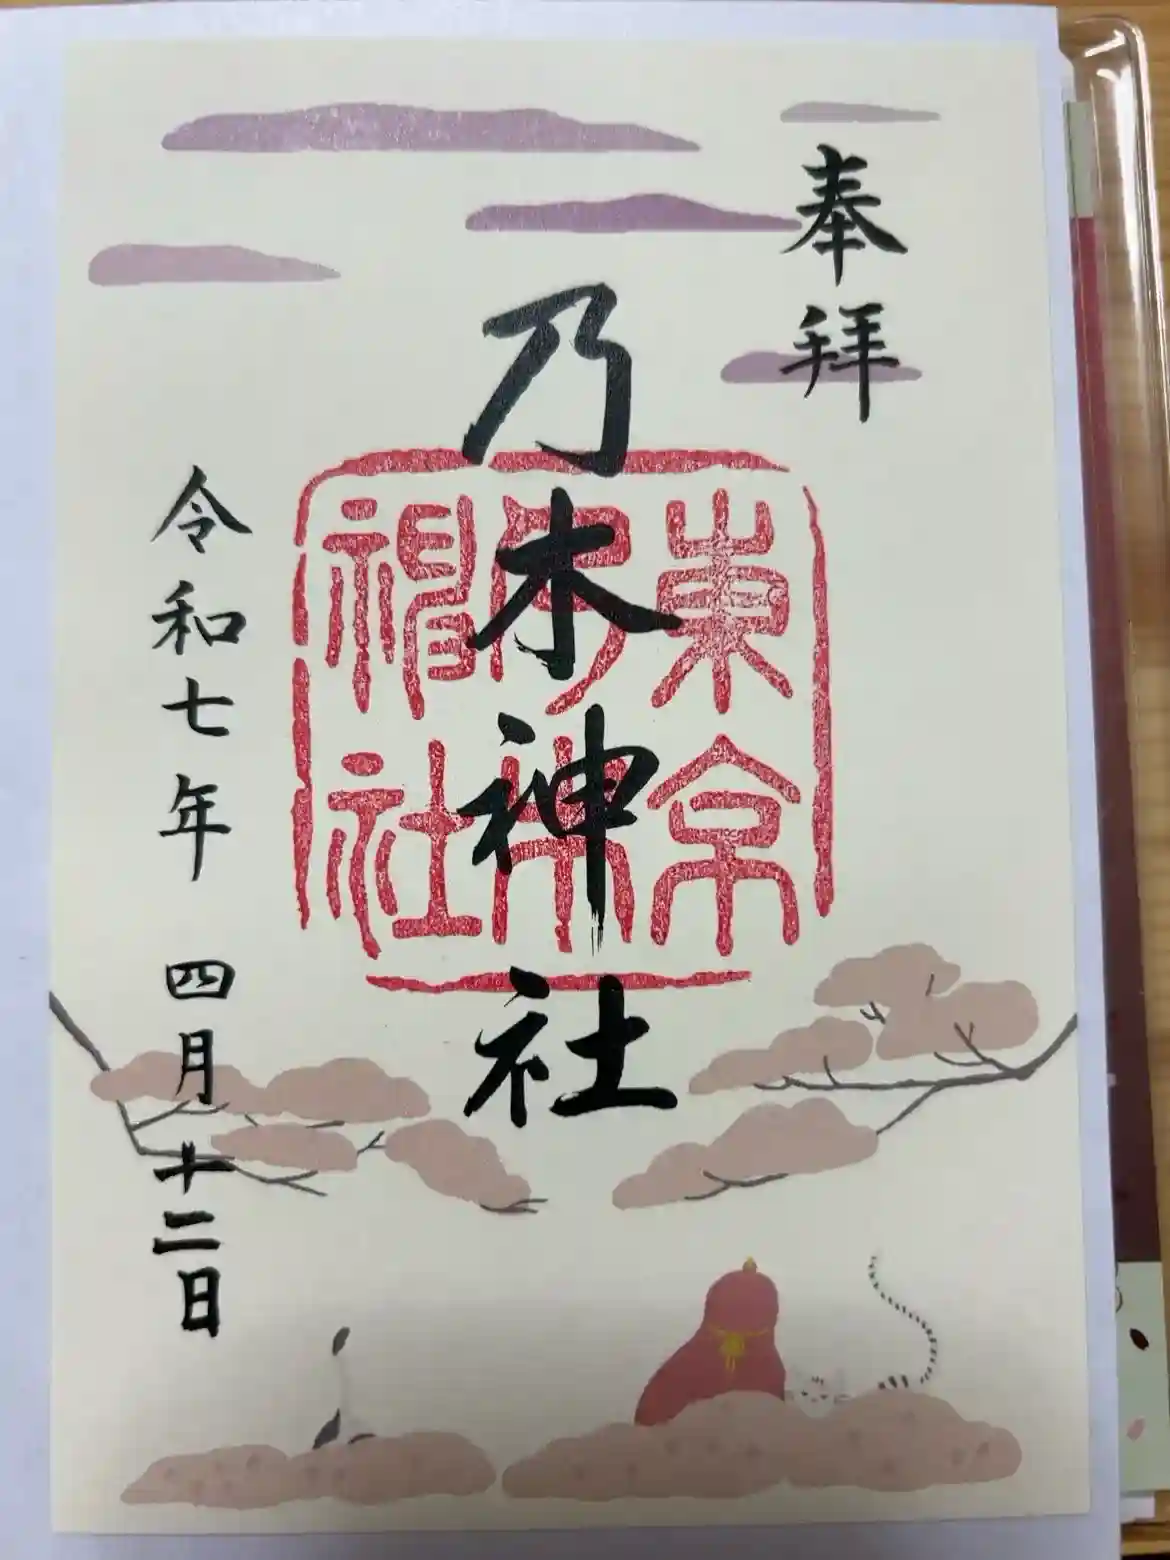 奉拝
東京
乃木
神社
乃木神社
令和七年 四月十二日